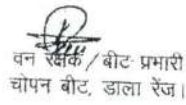 वन रक्षक / बीट प्रभारी
चोपन बीट, डाला रेंज।